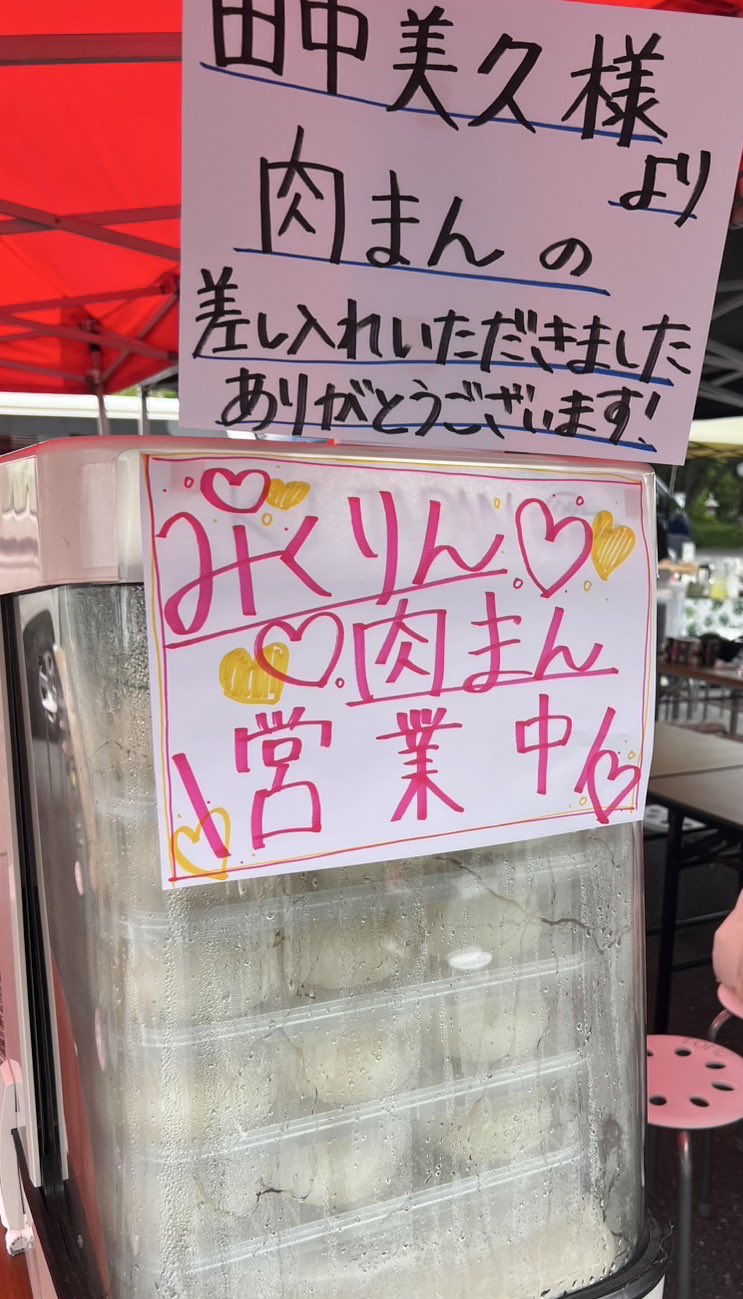 田中美久様
より
肉まんの
差し入れいただきました
ありがとうございます!
みくりん♡
♡肉まん
\営業中/